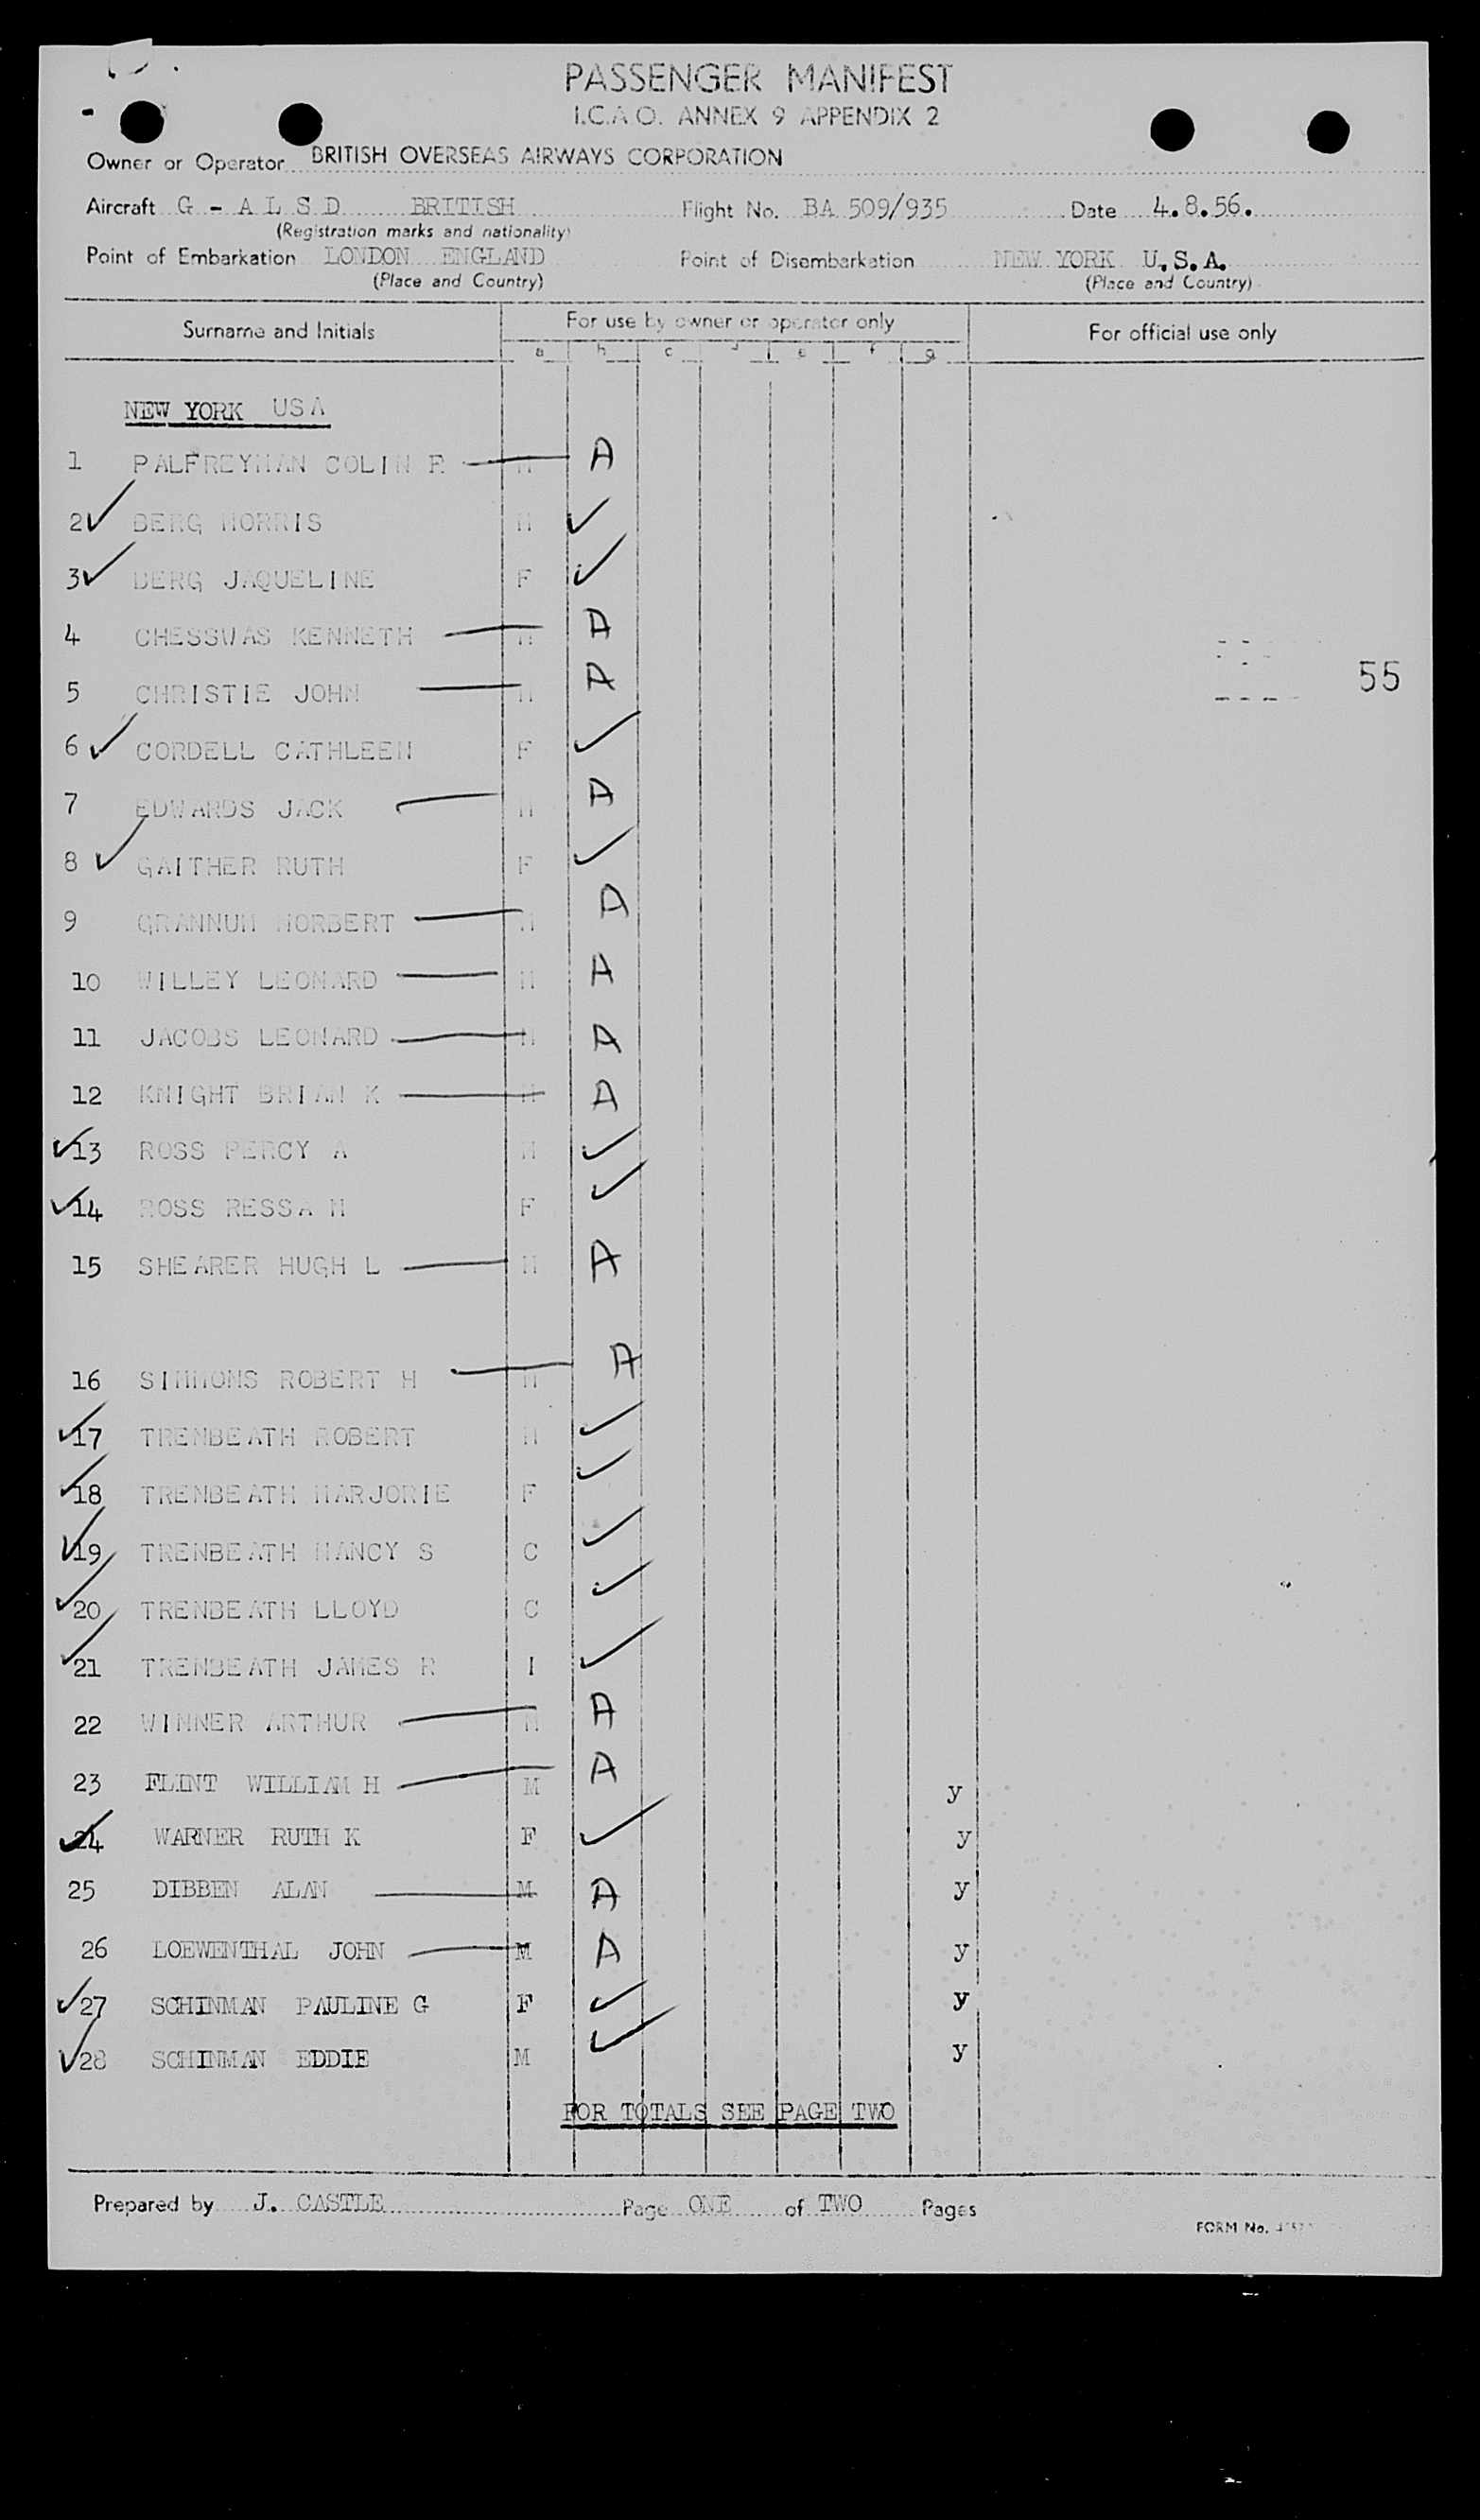 PASSENGER MANIFEST
I.C.A.O. ANNEX 9 APPENDIX 2
Owner or Operator BRITISH OVERSEAS AIRWAYS CORPORATION
Aircraft G - A L S D BRITISH Flight No. BA 509/935 Date 4.8.56.
(Registration marks and nationality)
Point of Embarkation LONDON ENGLAND Point of Disembarkation NEW YORK U.S.A.
(Place and Country) (Place and Country)
Surname and Initials For use by owner or operator only For official use only
a b c d e f g
NEW YORK USA
1 PALFREYMAN COLIN F M A
2 ✓ BERG MORRIS M ✓
3 ✓ BERG JAQUELINE F ✓
4 CHESSWAS KENNETH M A
5 CHRISTIE JOHN M A 55
6 ✓ CORDELL CATHLEEN F ✓
7 EDWARDS JACK M A
8 ✓ GAITHER RUTH F ✓
9 GRANNUM NORBERT M A
10 WILLEY LEONARD M A
11 JACOBS LEONARD M A
12 KNIGHT BRIAN K M A
✓ 13 ROSS PERCY A M ✓
✓ 14 ROSS RESSA M F ✓
15 SHEARER HUGH L M A
16 SIMMONS ROBERT H M A
✓ 17 TRENBEATH ROBERT M ✓
✓ 18 TRENBEATH MARJORIE F ✓
✓ 19 TRENBEATH NANCY S C ✓
✓ 20 TRENBEATH LLOYD C ✓
✓ 21 TRENBEATH JAMES R I ✓
22 WINNER ARTHUR M A
23 FLINT WILLIAM H M A y
✓ 24 WARNER RUTH K F ✓ y
25 DIBBEN ALAN M A y
26 LOEWENTHAL JOHN M A y
✓ 27 SCHINMAN PAULINE G F ✓ y
✓ 28 SCHINMAN EDDIE M ✓ y
FOR TOTALS SEE PAGE TWO
Prepared by J. CASTLE Page ONE of TWO Pages
FORM No.